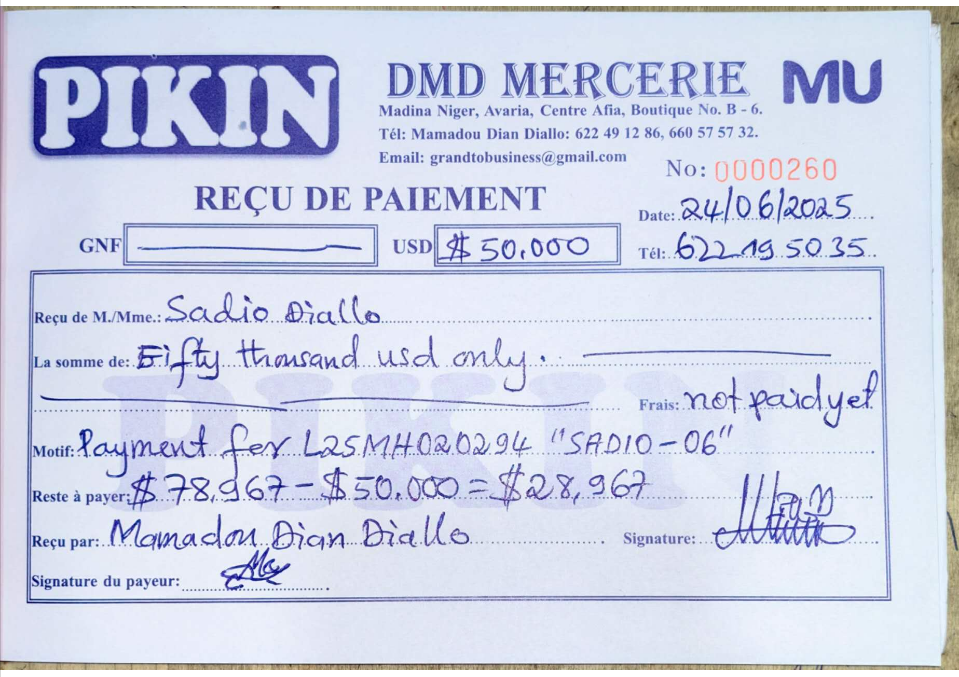 PIKIN
DMD MERCERIE
MU
Madina Niger, Avaria, Centre Afia, Boutique No. B - 6.
Tél: Mamadou Dian Diallo: 622 49 12 86, 660 57 57 32.
Email: grandtobusiness@gmail.com
No: 0000260
REÇU DE PAIEMENT
Date: 24/06/2025
GNF
USD $ 50.000
Tél: 622 19 50 35
Reçu de M./Mme.: Sadio Diallo
La somme de: Fifty thousand usd only.
Frais: not paid yet
Motif: Payment for L25MH020294 "SADIO-06"
Reste à payer: $ 78,967 - $ 50.000 = $ 28,967
Reçu par: Mamadou Dian Diallo
Signature:
Signature du payeur:
PIKIN